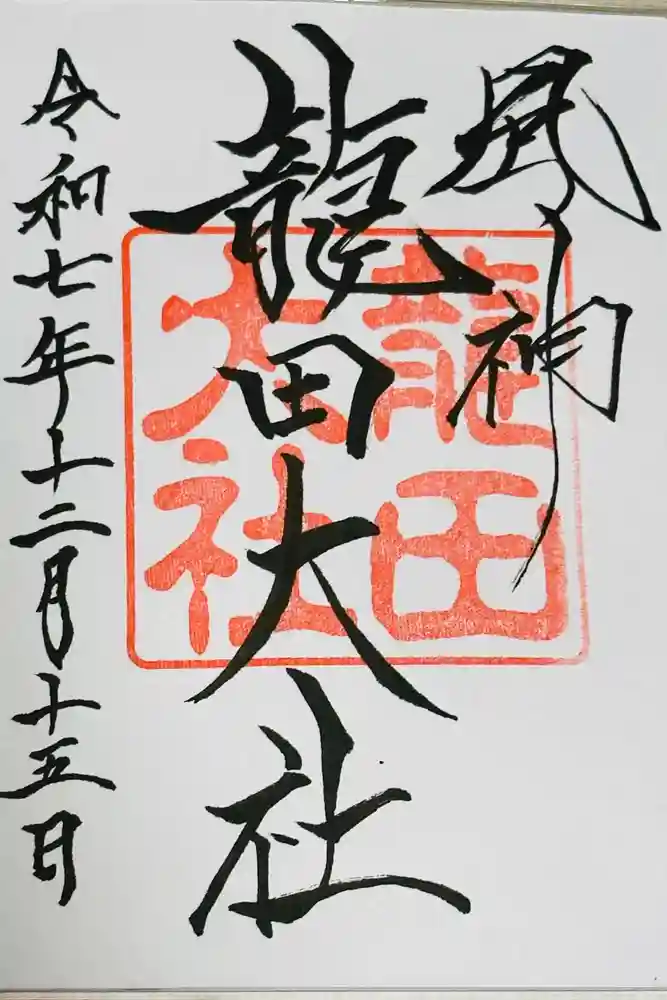 風神
龍田大社
龍田
大社
令和七年十二月十五日